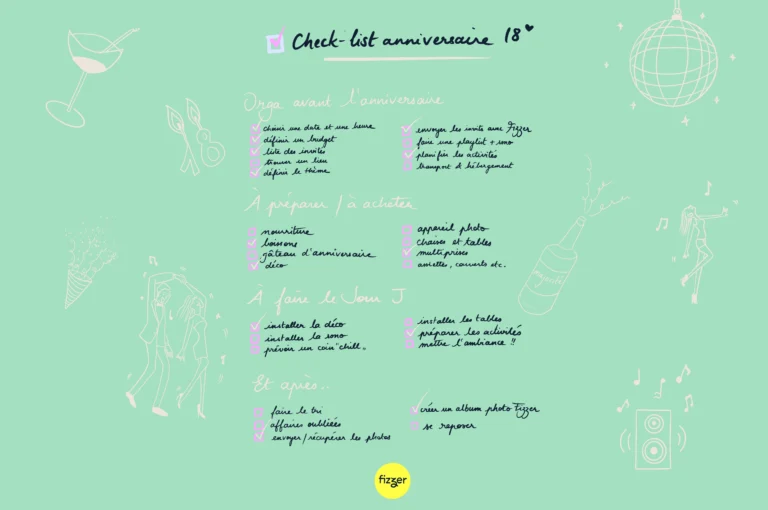 Check-list anniversaire 18
Orga avant l'anniversaire
choisir une date et une heure
définir un budget
liste des invités
trouver un lieu
définir le thème
envoyer les invits avec Fizzer
faire une playlist + sono
planifier les activités
transport & hébergement
À préparer / à acheter
nourriture
boissons
gâteau d'anniversaire
déco
appareil photo
chaises et tables
multiprises
assiettes, couverts etc.
À faire le Jour J
installer la déco
installer la sono
prévoir un coin "chill"
installer les tables
préparer les activités
mettre l'ambiance !!
Et après...
faire le tri
affaires oubliées
envoyer/récupérer les photos
créer un album photo Fizzer
se reposer
fizzer